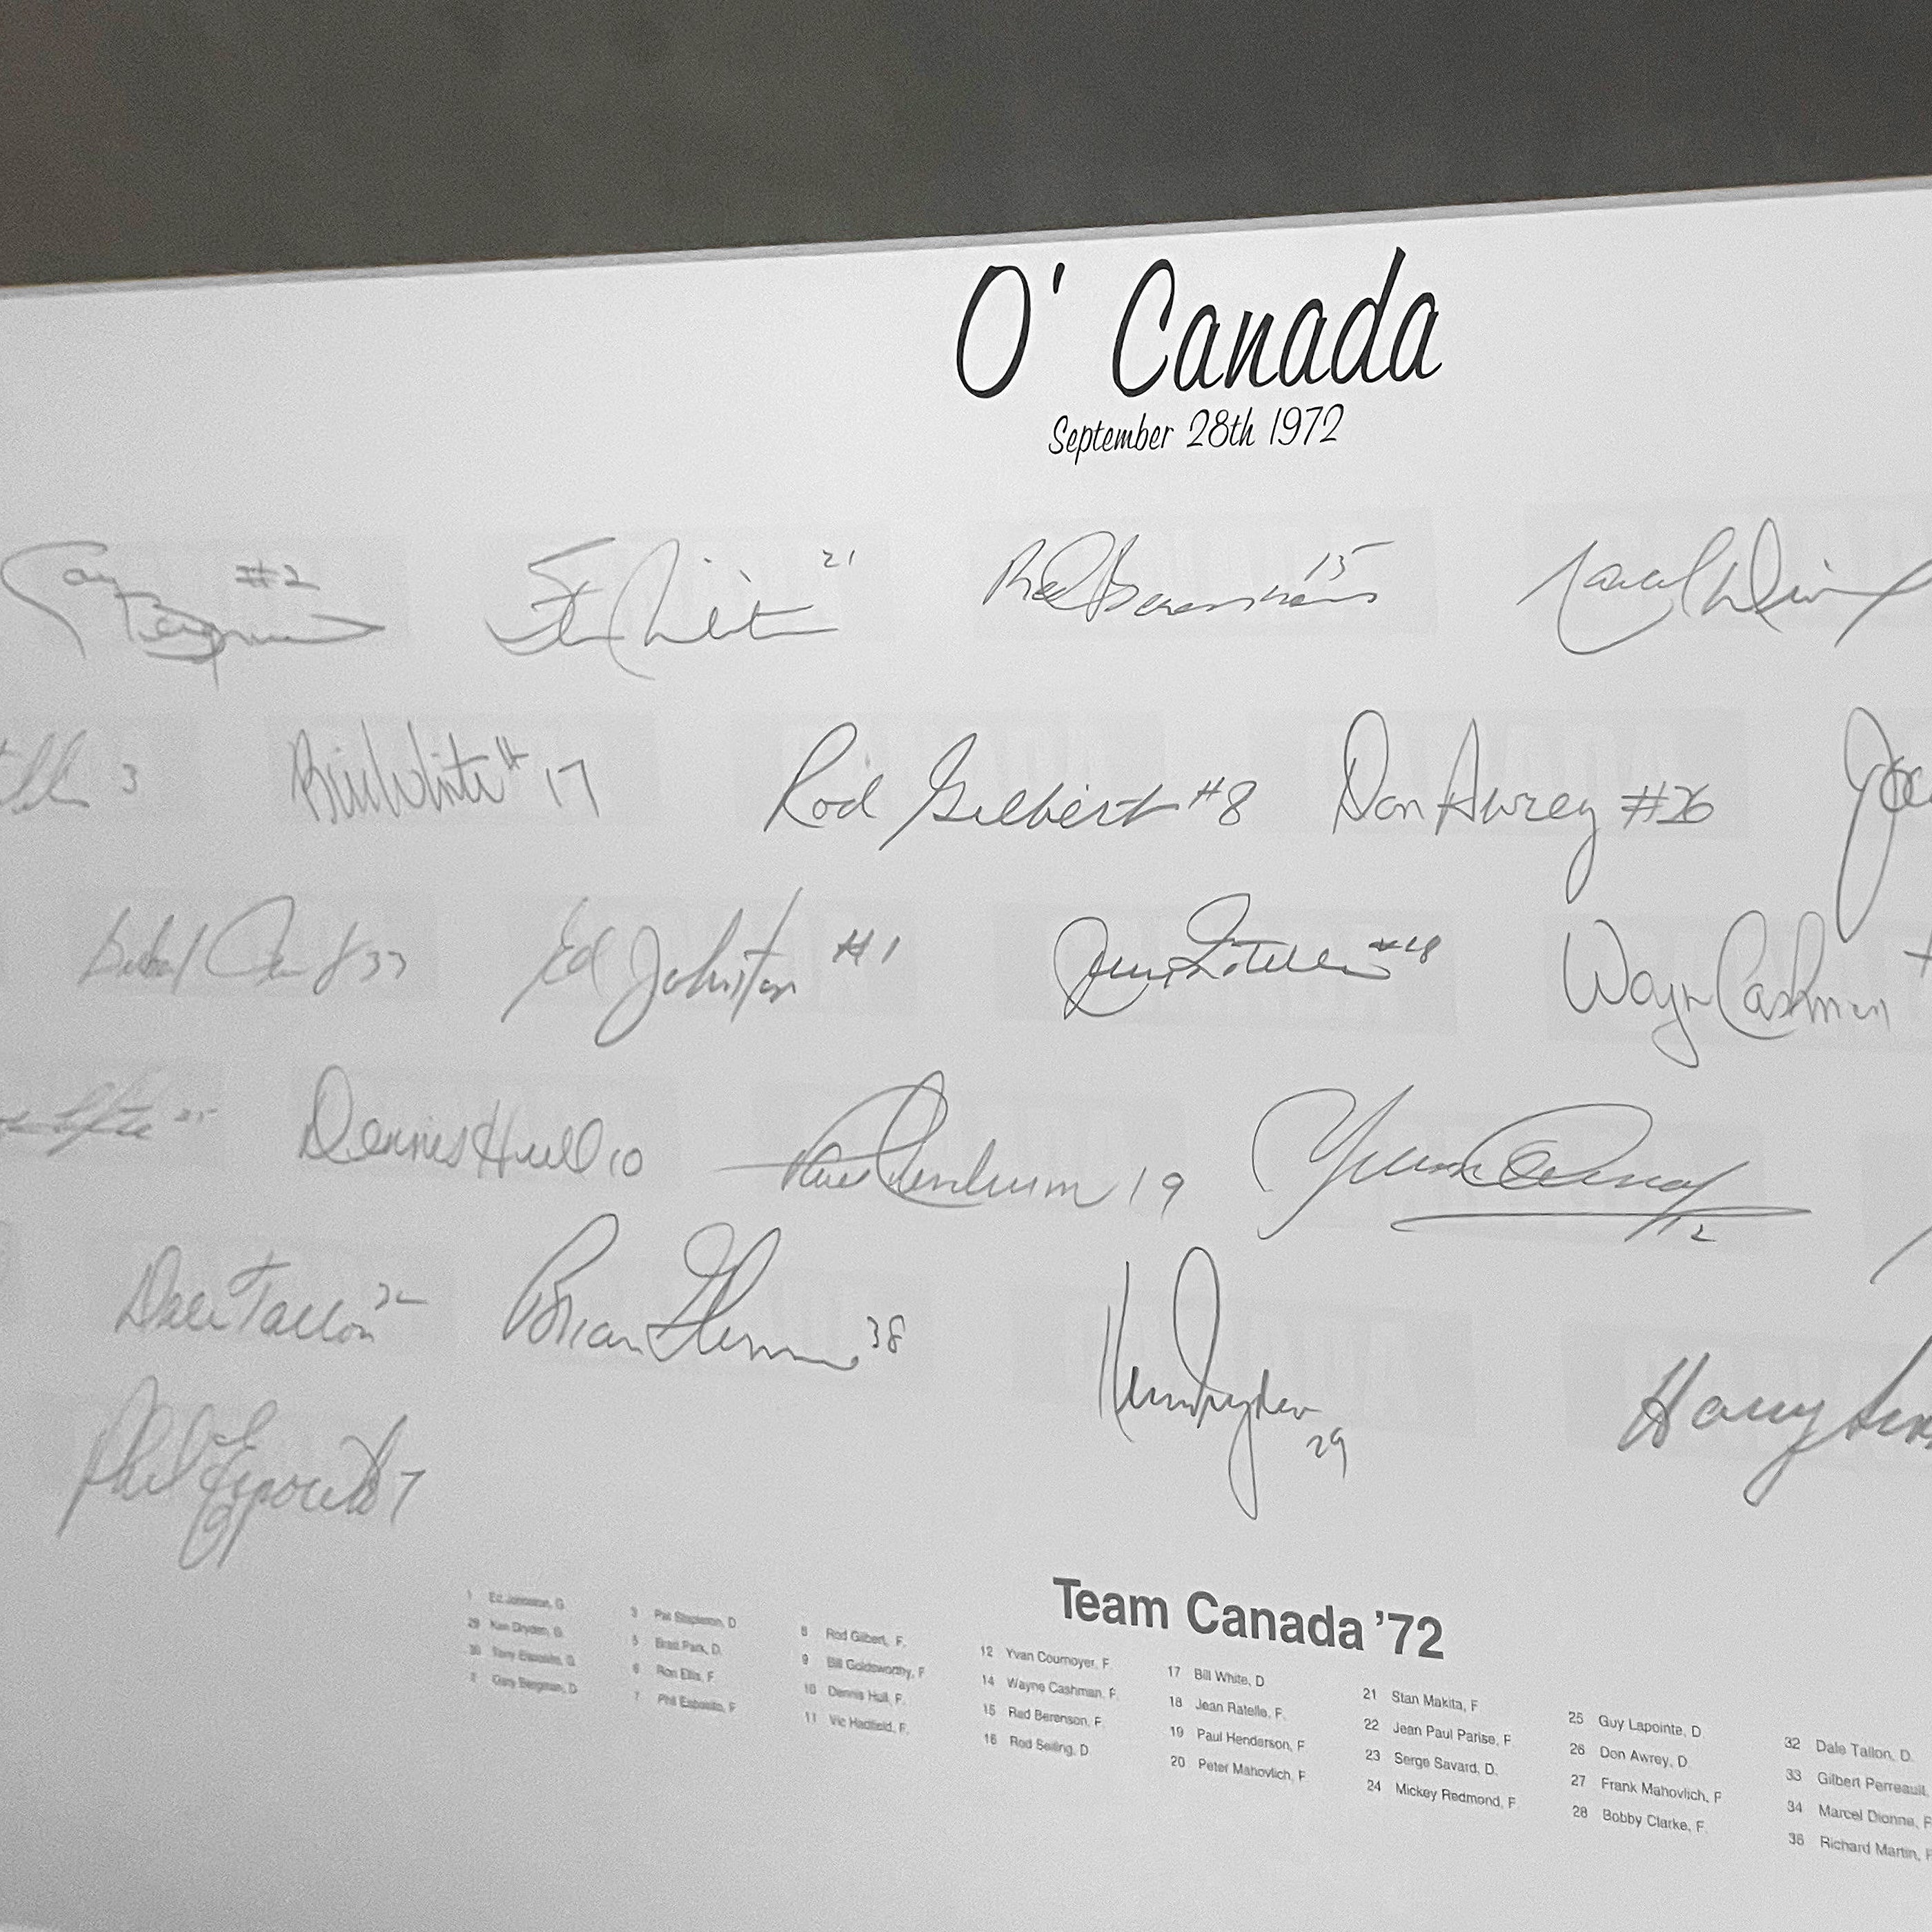 O' Canada
September 28th 1972
#2 21 Red Berenson 15
3 Bill White # 17 Rod Gilbert #8 Don Awrey #26
33 Ed Johnston #1 Jean Ratelle #18 Wayne Cashman
Dennis Hull 10 Paul Henderson 19 Yvan Cournoyer 12
Dale Tallon 32 Brian Glennie 38 Ken Dryden 29 Harry
Phil Esposito 7
Team Canada '72
1 Ed Johnston, G 3 Pat Stapleton, D 8 Rod Gilbert, F. 12 Yvan Cournoyer, F. 17 Bill White, D 21 Stan Makita, F 25 Guy Lapointe, D 32 Dale Tallon, D.
29 Ken Dryden, G. 5 Brad Park, D. 9 Bill Goldsworthy, F 14 Wayne Cashman, F. 18 Jean Ratelle, F. 22 Jean Paul Parise, F. 26 Don Awrey, D. 33 Gilbert Perreault,
30 Tony Esposito, G 6 Ron Ellis, F. 10 Dennis Hull, F. 15 Red Berenson, F. 19 Paul Henderson, F 23 Serge Savard, D. 27 Frank Mahovlich, F 34 Marcel Dionne, F
2 Gary Bergman, D 7 Phil Esposito, F 11 Vic Hadfield, F. 16 Rod Seiling, D. 20 Peter Mahovlich, F 24 Mickey Redmond, F 28 Bobby Clarke, F. 36 Richard Martin, F